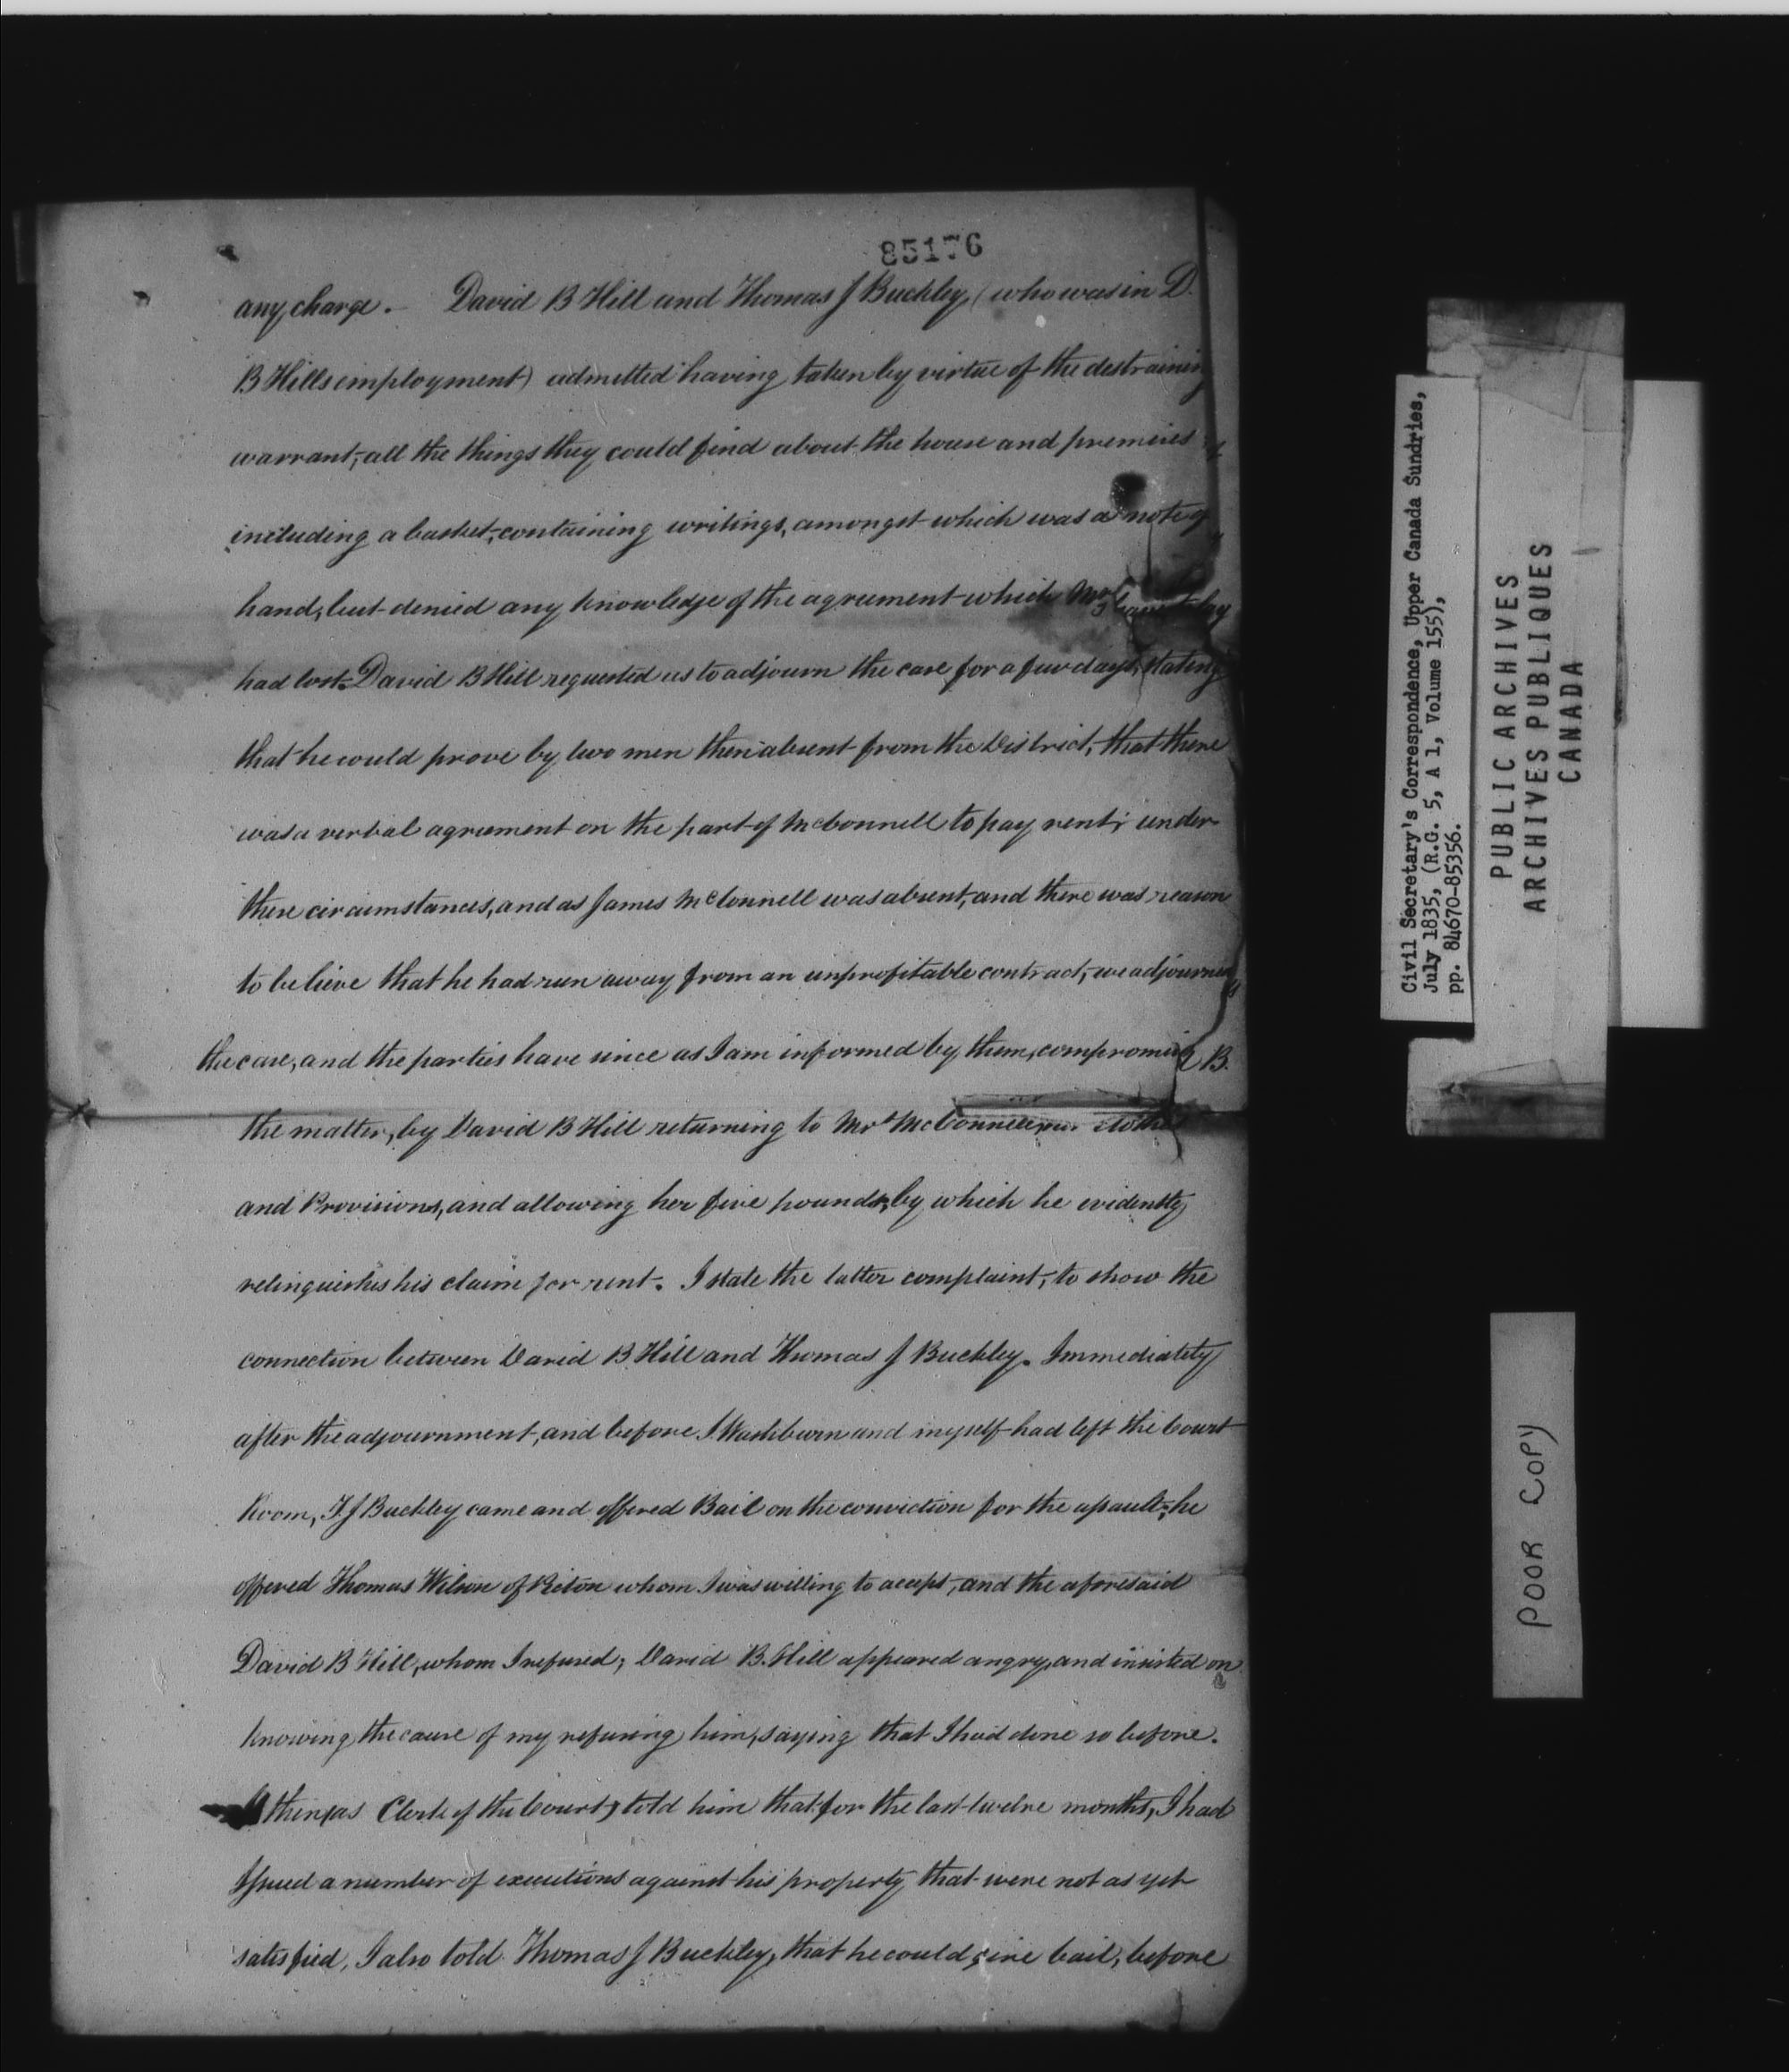 85176
any charge. – David B Hill and Thomas J Buckley, (who was in D.
B Hills employment) admitted having taken by virtue of the destraining
warrant, all the things they could find about the house and premises
including a basket, containing writings, amongst which was a note of
hand, but denied any knowledge of the agreement which
had lost. David B Hill requested us to adjourn the case for a few days, stating
that he would prove by two men then absent from the District, that there
was a verbal agreement on the part of McConnell to pay rent; under
these circumstances, and as James McConnell was absent, and there was reason
to believe that he had run away from an unprofitable contract, we adjourned
the case, and the parties have since as I am informed by them, compromised
the matter, by David B Hill returning to Mrs McConnell her clothes
and Provisions, and allowing her five pounds, by which he evidently
relinquishes his claim for rent. I state the latter complaint, to show the
connection between David B Hill and Thomas J Buckley. Immediately
after the adjournment, and before S. Washburn and myself had left the Court
Room, T. J Buckley came and offered Bail on the conviction for the assault, he
offered Thomas Wilson of Picton whom I was willing to accept, and the aforesaid
David B Hill, whom I refused; David B. Hill appeared angry, and insisted on
knowing the cause of my refusing him, saying that I had done so before.
I then (as Clerk of the Court) told him that for the last twelve months, I had
Issued a number of executions against his property that were not as yet
satisfied, I also told Thomas J Buckley, that he could give bail, before
Civil Secretary's Correspondence, Upper Canada Sundries,
July 1835, (R.G. 5, A 1, Volume 155),
pp. 84670-85356.
PUBLIC ARCHIVES
ARCHIVES PUBLIQUES
CANADA
POOR COPY